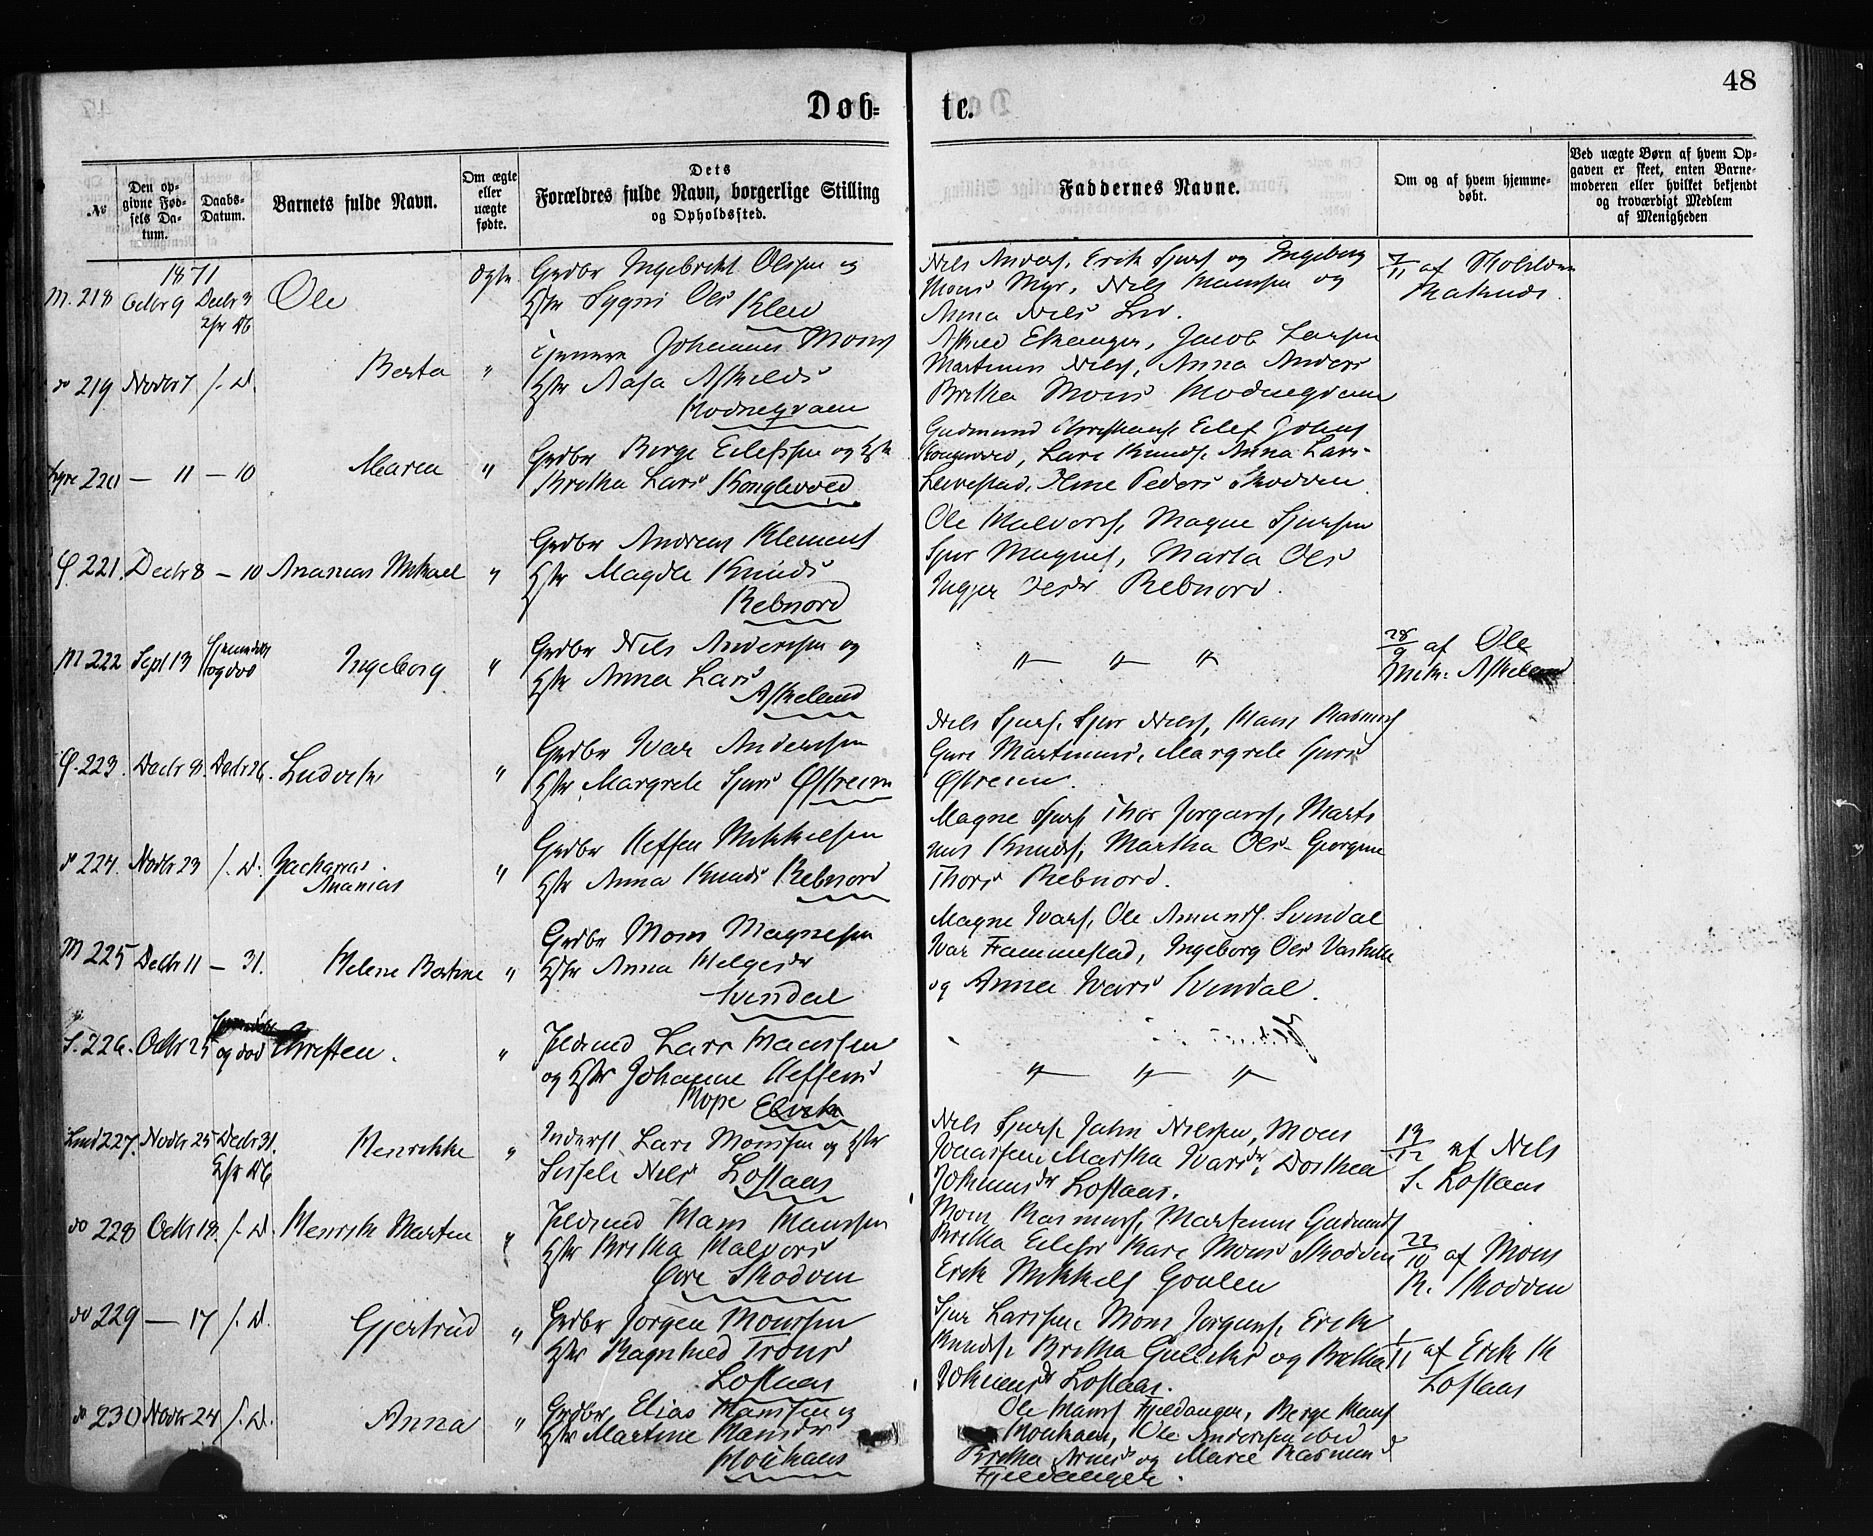 48
Døb-
te.
No
Den op-
givne Fød-
sels Da-
tum.
Daabs-
Datum.
Barnets fulde Navn.
Om ægte
eller
uægte
fødte.
Dets
Forældres fulde Navn, borgerlige Stilling
og Opholdssted.
Faddernes Navne.
Om og af hvem hjemme-
døbt.
Ved uægte Børn af hvem Op-
gaven er skeet, enten Barne-
moderen eller hvilket bekjendt
og troværdigt Medlem
af Menigheden
1871
M. 218 Octbr 9 Decbr 3 Ole ægte Grdbr Ingebrikt Olssen og
Hstr Sygni Ols
Nils Anders. Erik Sjurs. og Ingeborg
Mons Myr, Nils Hanssen og
Anna Nils
7/11 af
do 219 Novbr 7 s. D. Berta " Johannes Mons
Hstr Aasa Askilds
Hodnegraen
Askild Ekanger, Jacob Larssen
Martinus Nils, Anna Anders
Britha Mons Hodnegraen
220 — 11 — 10 Maren " Grdbr Børge Eilefssen og Hstr
Britha Lars Konglevoed
Gudmund Christians. Eilef Johans
Lars Knuds. Anna Lars
Peders Skodven
221 Decbr 8 — 10 Ananias Mikael " Grdbr Andreas Klements
Hstr Magda Knuds
Rebnord
Ole Halvors, Magne Sjursen
Sjur Magnes, Marta Ols
Rebnord.
M 222 Sept 13 og død Ingeborg " Grdbr Nils Anderssen og
Hstr Anna Lars
Askeland
" " "
28/9 af Ole
Mik: Askeland
223. Decbr 8. Decbr 26. Ludvik " Grdbr Ivar Anderssen
Hstr Margrete Sjurs Østreim
Nils Sjurs. Sjur Nils, Hans Rasmus
Guri Martinus. Margrete Sjurs
Østreim.
224. Novbr 23 s. D. Zacharias
Ananias " Grdbr Steffen Mikkelsen
Hstr Anna Knuds Rebnord
Magne Sjurs. Thor Jørgens, Marti
nus Knuds, Martha Ols Georgine
Thors Rebnord.
M 225 Decbr 11 — 31. Helene Bertine " Grdbr Mons Magnesen
Hstr Anna Helges
Svindal
Magne Ivars, Ole Amunds. Svindal
Ivar Frammestad, Ingeborg Ols
og Anna Ivars Svindal.
226. Octbr 25 og død Christen. " Lars Hanssen
og Hstr Johanne Steffens
Elvik
" " "
Lind 227. Novbr 25 Decbr 31. Henrikke " Inderst Lars Monssen og Hstr
Sissele Nils Loftaas
Nils Sjurs. John Nilssen, Mons
Martha Ivars Dorthea
Johannes Loftaas.
13/12 af Nils
S. Loftaas
do 228 Octbr 18. s. D. Henrik Martin " Hans Hanssen
Hstr Britha Halvors
Øvre Skodven
Mons Rasmus, Martinus Gudmunds
Britha Eilefs Kari Mons Skodven
Erik Mikkels Goulen
22/10 af Mons
R. Skodven
do 229 — 17 s. D. Gjertrud " Grdbr Jørgen Monssen
Hstr Ragnhild Trons
Loftaas
Sjur Larssen, Mons Jørgens, Erik
Knuds. Britha Gulliks og Britha
Johannes Loftaas.
1/11 af Erik K
Loftaas
do 230 Novbr 24 s. D. Anna " Grdbr Elias Hanssen og
Hstr Martine Hans
Ole Hans Fjeldanger, Børge Hans
Ole Anderssen ibid
Britha Arnes og Marie Rasmus
Fjeldanger.